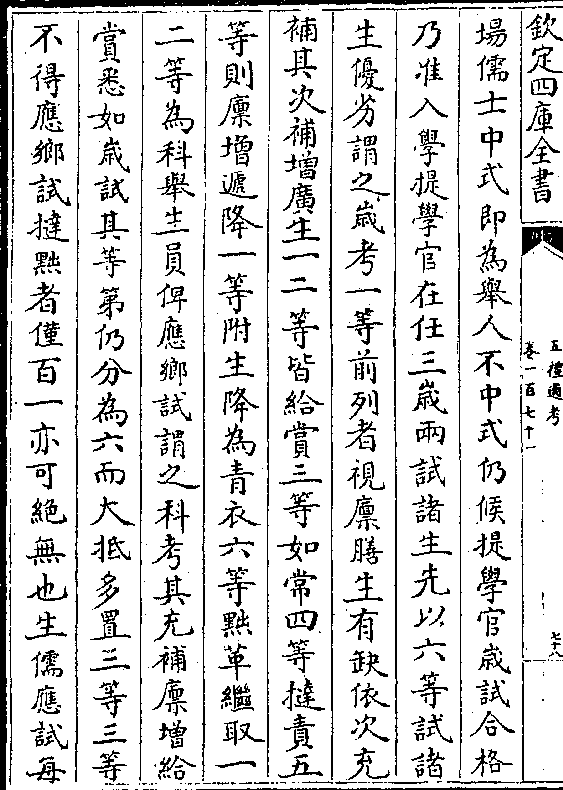 欽定四庫全書
五禮通考
卷一百七十一
七十八
場儒士中式即為舉人不中式仍候提學官歲試合格
乃准入學提學官在任三歲兩試諸生先以六等試諸
生優劣謂之歲考一等前列者視廩膳生有缺依次充
補其次補增廣生一二等皆給賞三等如常四等撻責五
等則廩增遞降一等附生降為青衣六等黜革繼取一
二等為科舉生員俾應鄉試謂之科考其充補廩增給
賞悉如歲試其等第仍分為六而大抵多置三等三等
不得應鄉試撻黜者僅百一亦可絕無也生儒應試每